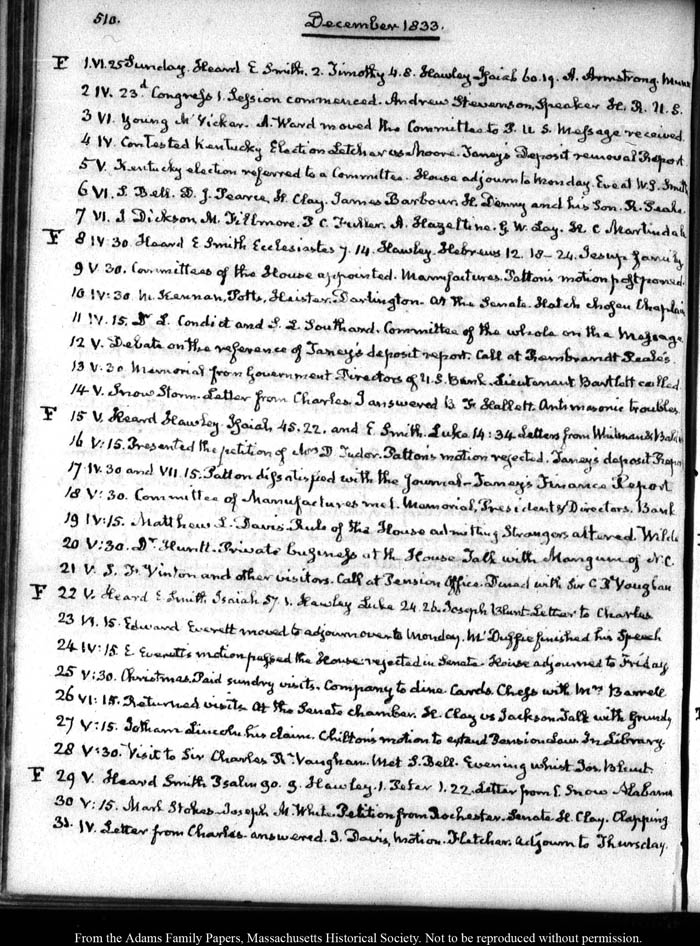 510. December 1833.
F 1. VI.25 Sunday. Heard E Smith. 2. Timothy 4.8. Hawley Isaiah 60.19. A. Armstrong.
2 IV. 23.d Congress 1. Session commenced. Andrew Stevenson, Speaker H. R. U.S.
3 VI. Young McVickar. A. Ward moved the Committee to P. U S. Message received.
4 IV. Contested Kentucky Election Letcher vs Moore. Taney's Deposit removal Report
5 V. Kentucky election referred to a Committee. House adjourn to Monday. Eve at W. S. Smith
6 VI. S Bell. D. J. Pearce, H. Clay. James Barbour. H. Denny and his Son. R. Peale.
7 VI. J Dickson M. Fillmore. P C. Fuller. A. Hazeltine. G W. Lay. H. C Martindale
F 8 IV.30. Heard E Smith Ecclesiastes 7.14. Hawley. Hebrews 12.18-24. Jesup family
9 V.30. Committees of the House appointed. Manufactures. Patton's motion postponed.
10 IV:30. McKennan, Potts, Heister. Darlington. At the Senate. Hatch chosen Chaplain
11 IV.15. Dr L. Condict and S. L. Southard. Committee of the whole on the Message
12 V. Debate on the reference of Taney's deposit report. Call at Rembrandt Peale's.
13 V:30. Memorial from Government Directors of U.S. Bank. Lieutenant Bartlett called.
14 V. Snow Storm. Letter from Charles. I answered B F Hallett. Antimasonic troubles.
F 15 V. Heard Hawley. Isaiah 45.22. and E. Smith. Luke 14:34 Letters from Whitman &
16 V:15. Presented the petition of Mrs D. Tudor. Patton's motion rejected. Taney's deposit Report
17 IV.30 and VII.15. Patton dissatisfied with the Journal. Taney's Finance Report
18 V:30. Committee of Manufactures met. Memorial, Presidents & Directors. Bank
19 IV:15. Matthew L. Davis. Rule of the House admitting Strangers altered. Wilde
20 V:30. Dr Huntt. Private business at the House Talk with Mangum of N.C.
21 V. S. F. Vinton and other visitors. Call at Pension Office. Dined with Sir C R Vaughan
F 22 V. Heard E. Smith Isaiah 57.1. Hawley Luke 24.26. Joseph Blunt. Letter to Charles
23 VI.15. Edward Everett moved to adjourn over to Monday. McDuffie finished his Speech
24 IV:15. E. Everett's motion passed the House. rejected in Senate. House adjourned to Friday
25 V:30. Christmas. Paid sundry visits. Company to dine Cards. Chess with Mrs Barrell
26 VI:15. Returned visits. At the Senate chamber. H. Clay vs Jackson. Talk with Grundy
27 V:15. Jotham Lincoln, his claim. Chilton's motion to extend Pension Law. In Library.
28 V:30. Visit to Sir Charles R. Vaughan. Met S. Bell. Evening whist Jos. Blunt.
F 29 V. Heard Smith Psalm 90.9. Hawley. 1. Peter 1.22. Letter from E Snow Alabama
30 V:15. Mark Stokes. Joseph M. White. Petition from Rochester. Senate H. Clay. Clapping
31. IV. Letter from Charles. answered. J. Davis, motion. Fletcher. Adjourn to Thursday.
From the Adams Family Papers, Massachusetts Historical Society. Not to be reproduced without permission.